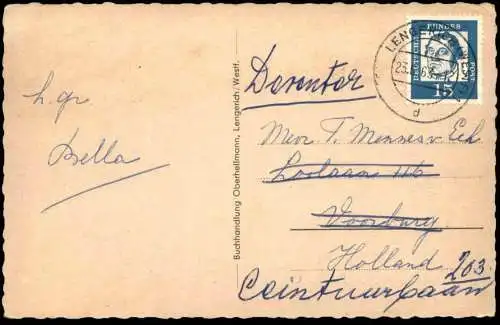 h. gr.
Bella
Buchhandlung Oberhellmann, Lengerich/Westf.
DEUTSCHE BUNDESPOST
15
LENGERICH
23.
d
Deventer
Mevr. T. Mennes v Eck
Loolaan 116
Voorburg
Holland
203
Ceintuurbaan